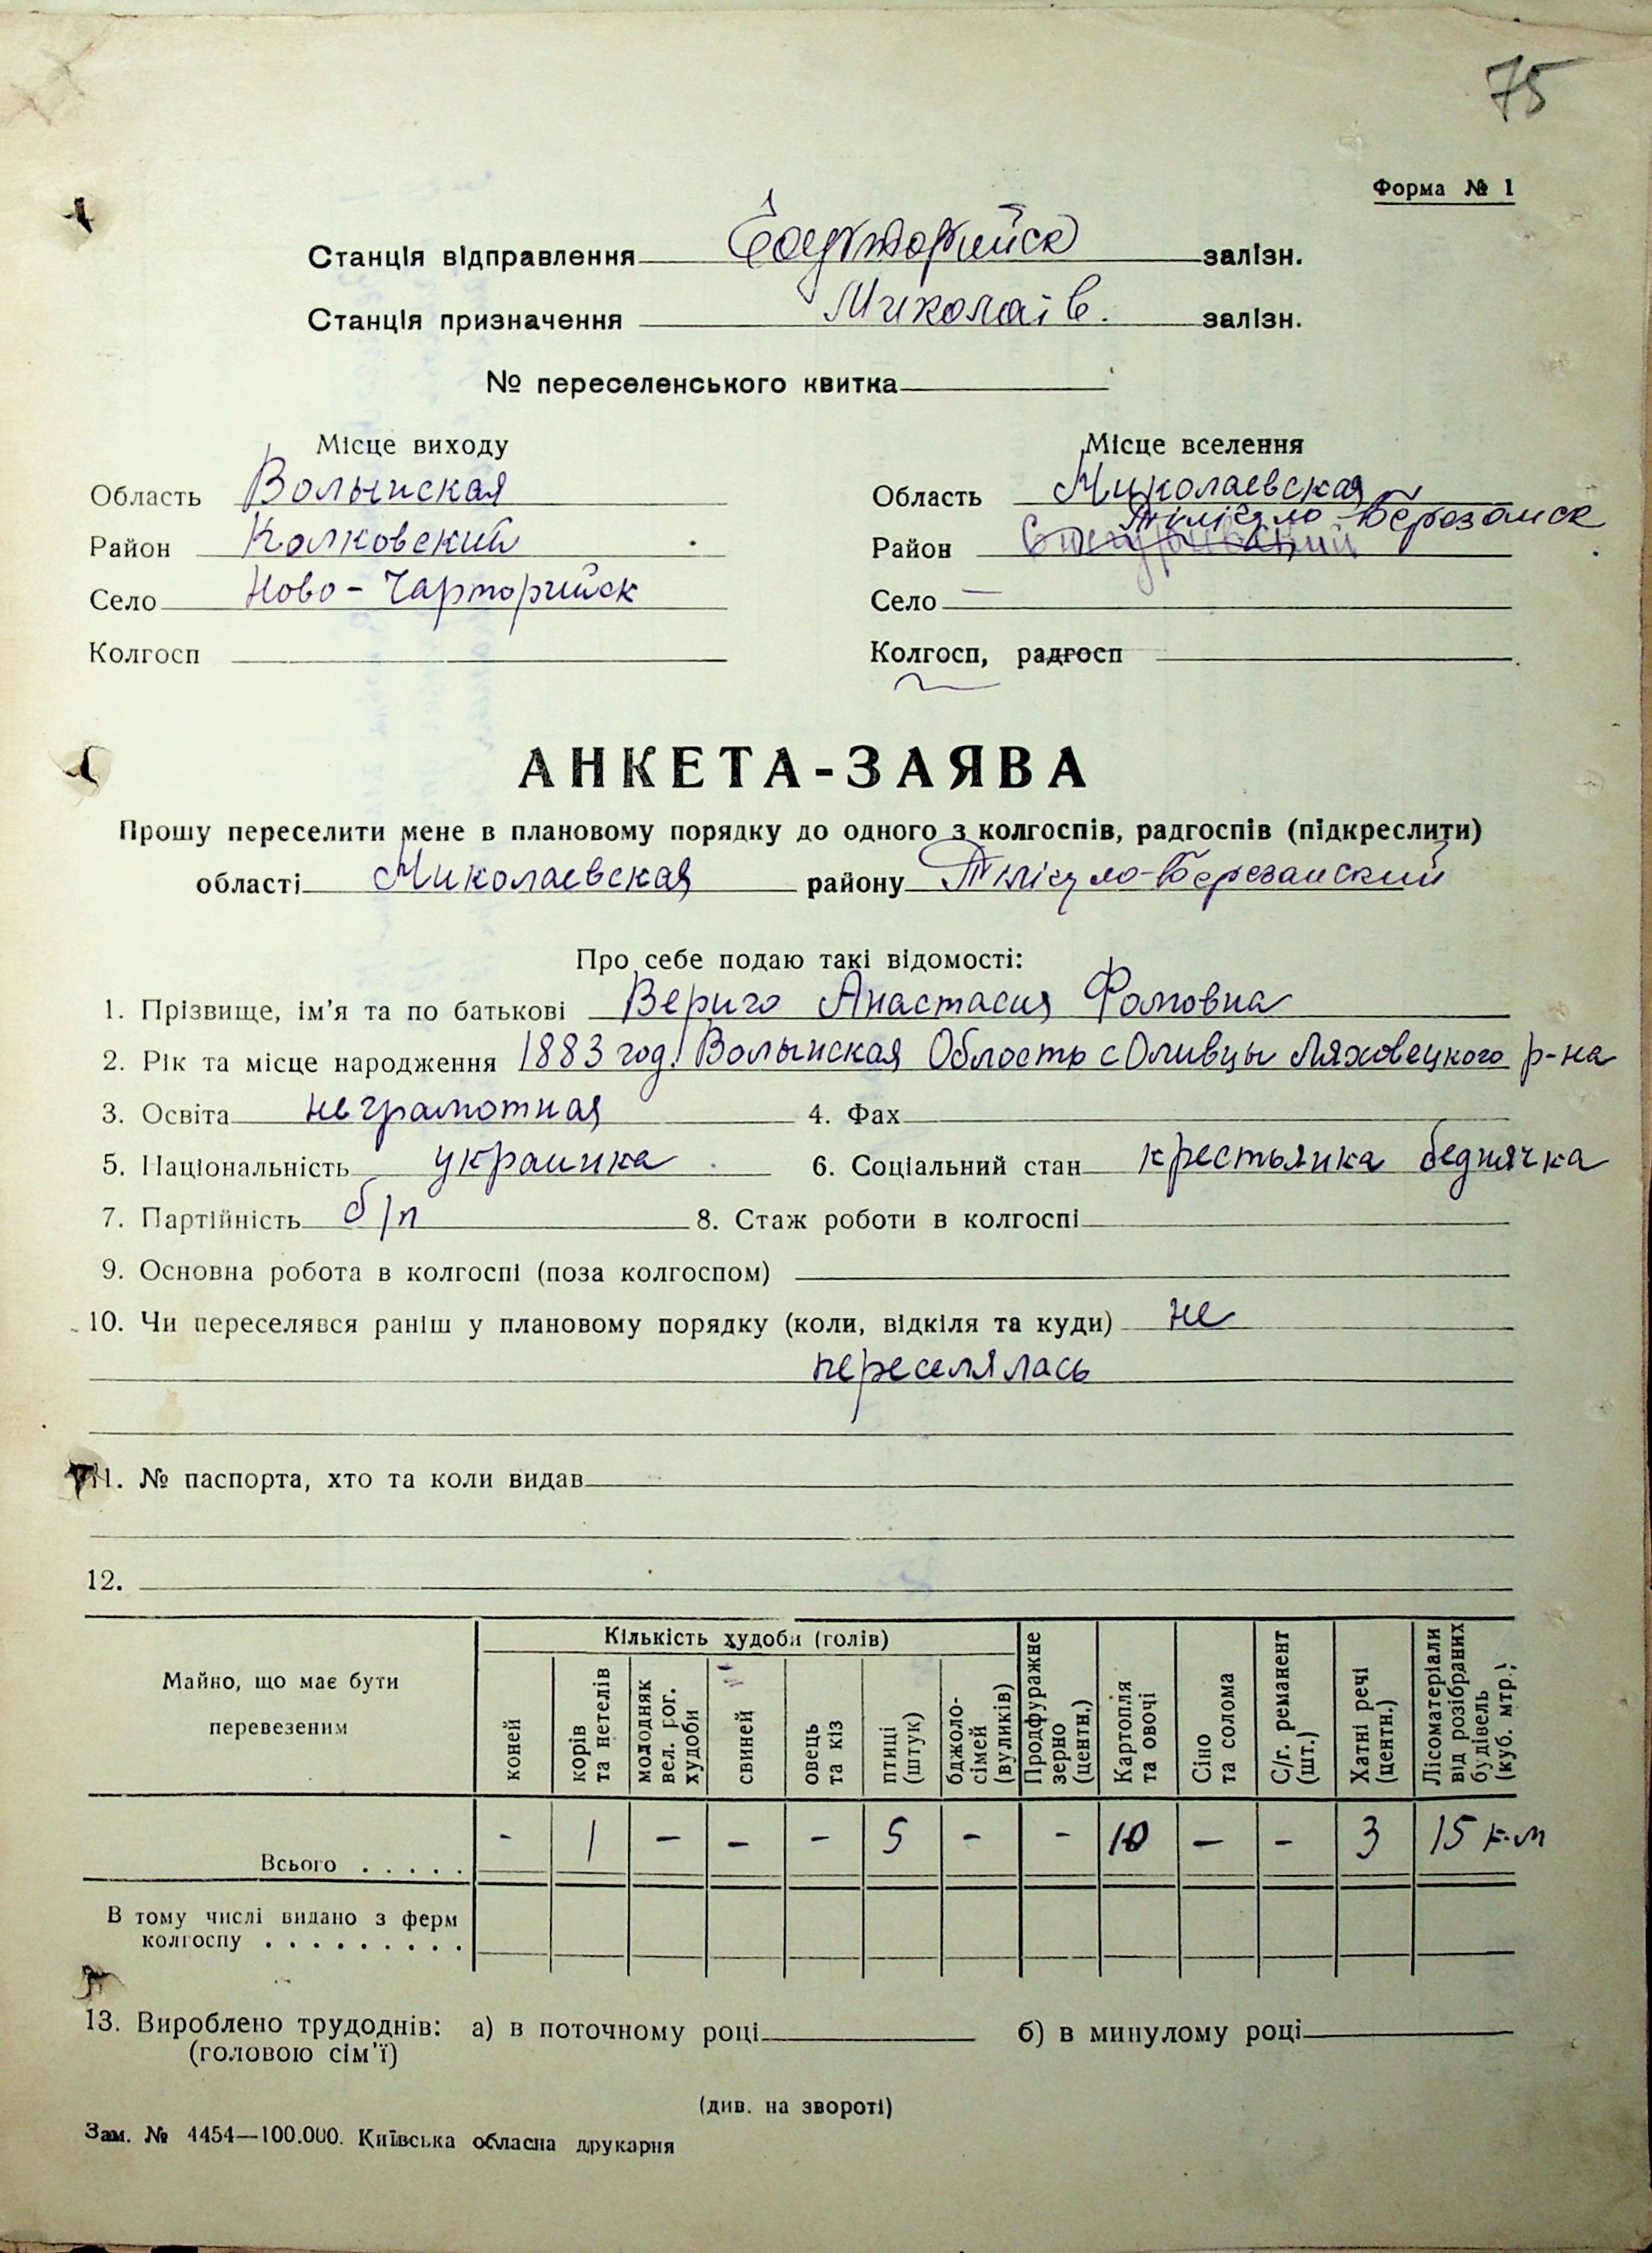 75
Форма № 1
Станція відправлення залізн.
Станція призначення Миколаїв. залізн.
№ переселенського квитка
Місце виходу Місце вселення
Область Волынская Область Николаевская
Тилігуло-Березанск
Район Колковский Район
Село Ново-Чарторийск Село —
Колгосп Колгосп, радгосп
АНКЕТА-ЗАЯВА
Прошу переселити мене в плановому порядку до одного з колгоспів, радгоспів (підкреслити)
області Николаевская району Тилігуло-Березанский
Про себе подаю такі відомості:
1. Прізвище, ім'я та по батькові Вериго Анастасия Фомовна
2. Рік та місце народження 1883 год. Волынская Область с Оливцы Ляховецкого р-на
3. Освіта неграмотная 4. Фах
5. Національність украинка 6. Соціальний стан крестьянка беднячка
7. Партійність б/п 8. Стаж роботи в колгоспі
9. Основна робота в колгоспі (поза колгоспом)
10. Чи переселявся раніш у плановому порядку (коли, відкіля та куди) не
переселялась
11. № паспорта, хто та коли видав
12.
Майно, що має бути перевезеним
Кількість худоби (голів)
коней
корів та нетелів
молодняк вел. рог. худоби
свиней
овець та кіз
птиці (штук)
бджоло-сімей (вуликів)
Продфуражне зерно (центн.)
Картопля та овочі
Сіно та солома
С/г. реманент (шт.)
Хатні речі (центн.)
Лісоматеріали від розібраних будівель (куб. мтр.)
Всього . . . . . - 1 - - - 5 - - 10 - - 3 15 к.м
В тому числі видано з ферм
колгоспу . . . . . . . . .
13. Вироблено трудоднів: а) в поточному році б) в минулому році
(головою сім'ї)
(див. на звороті)
Зам. № 4454—100.000. Київська обласна друкарня